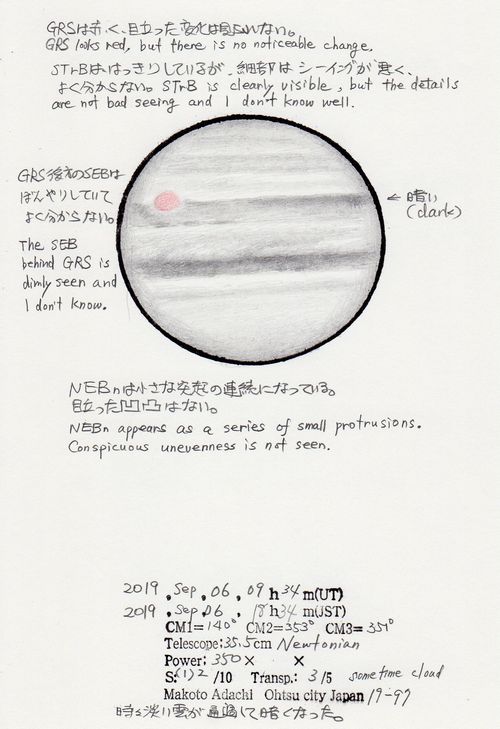 GRSは赤く、目立った変化は見られない。
GRS looks red, but there is no noticeable change.
STrBははっきりしているが、細部はシーイングが悪く、
よく分からない。STrB is clearly visible, but the details
are not bad seeing and I don't know well.
GRS後方のSEBは
ぼんやりしていて
よく分からない。
The SEB
behind GRS is
dimly seen and
I don't know.
← 暗い
(dark)
NEBnは小さな突起の連続になっている。
目立った凹凸はない。
NEBn appears as a series of small protrusions.
Conspicuous unevenness is not seen.
2019 . Sep . 06 . 09 h 34 m(UT)
2019 . Sep . 06 . 18 h 34 m(JST)
CM1= 140° CM2= 353° CM3= 351°
Telescope: 35.5 cm Newtonian
Power: 350 × ×
S: (1) 2 /10 Transp.: 3 /5 sometime cloud
Makoto Adachi Ohtsu city Japan 19-97
時々淡い雲が通過して暗くなった。